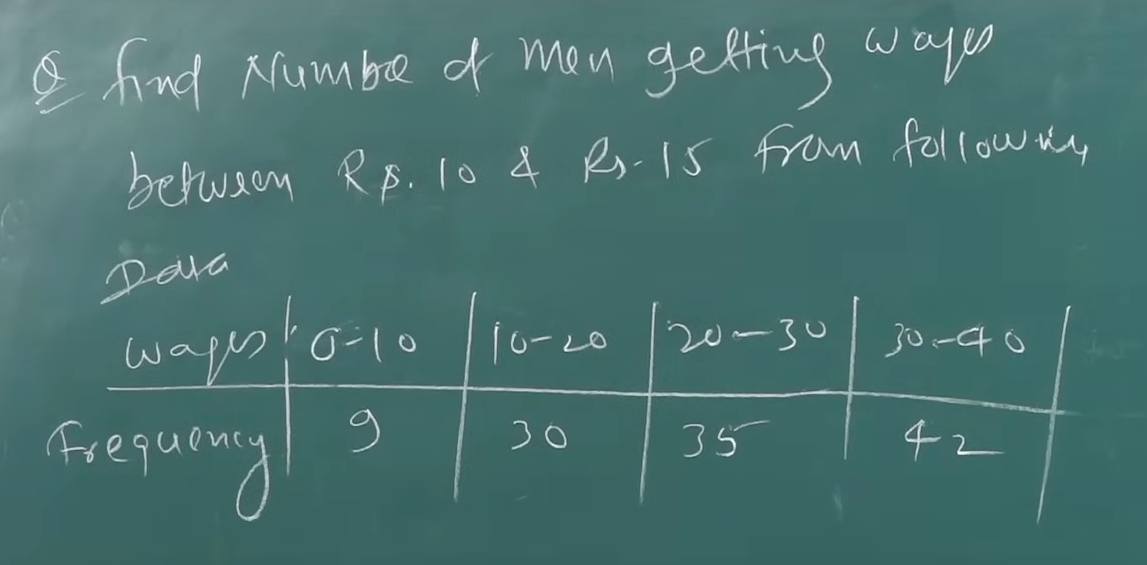 Q find Number of men getting wages
between Rs. 10 & Rs. 15 from following
Data
wages 0-10 10-20 20-30 30-40
Frequency 9 30 35 42